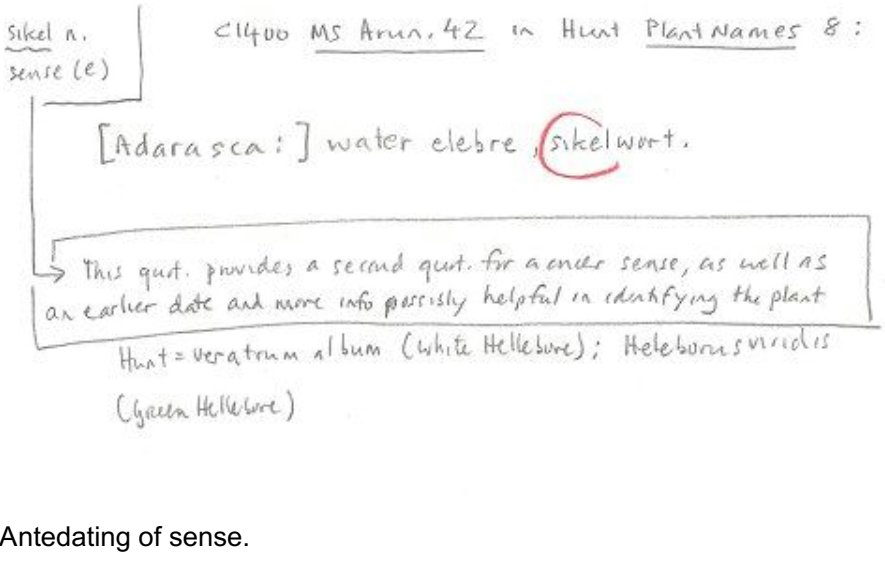 sikel n.
sense (e)
c1400 MS Arun. 42 in Hunt Plant Names 8:
[Adarasca:] water elebre, sikelwort.
This quot. provides a second quot. for a oncer sense, as well as
an earlier date and more info possibly helpful in identifying the plant
Hunt = veratrum album (white Hellebore); Heleborus viridis
(Green Hellebore)
Antedating of sense.